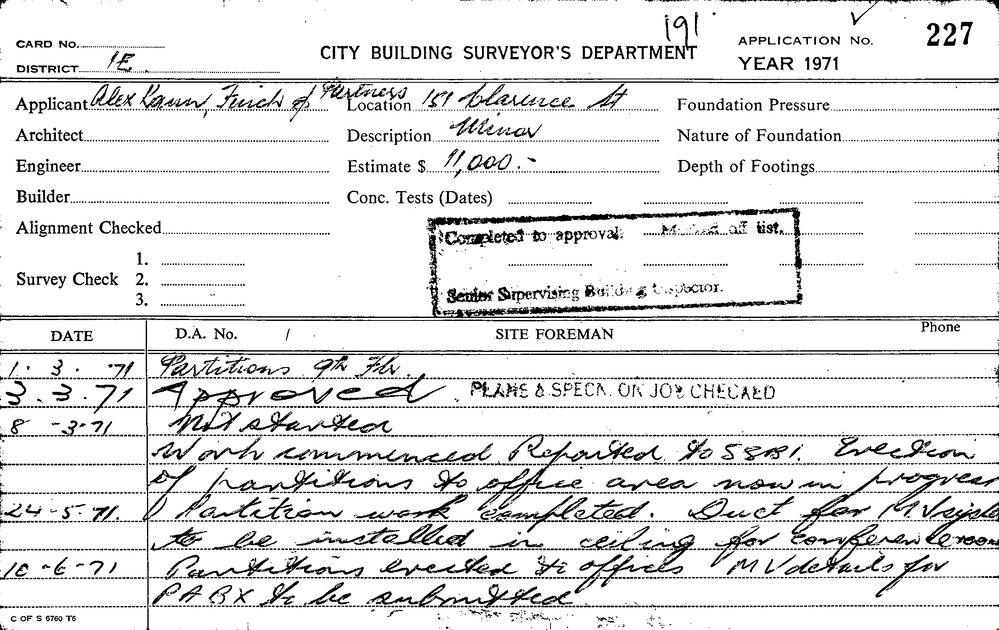 191.
CARD No.
CITY BUILDING SURVEYOR'S DEPARTMENT
APPLICATION No. 227
DISTRICT 1E.
YEAR 1971
Applicant Alex Kann, Finch & Partners
Location 151 Clarence St
Foundation Pressure
Architect
Description Minor
Nature of Foundation
Engineer
Estimate $ 11,000.-
Depth of Footings
Builder
Conc. Tests (Dates)
Alignment Checked
Completed to approval. Marked off list.
Survey Check
1.
2.
3.
Senior Supervising Building Inspector.
DATE
D.A. No. /
SITE FOREMAN
Phone
1. 3. 71 Partitions 9th Flr.
3. 3. 71 Approved PLANS & SPECN. ON JOB CHECKED
8 -3-71 Not started
Work commenced Reported to SSBI. Erection
of partitions to office area now in progress
24-5-71. Partition work completed. Duct for MV
to be installed in ceiling for conference room
10-6-71 Partitions erected to offices MV details for
PABX to be submitted
C OF S 6760 T6